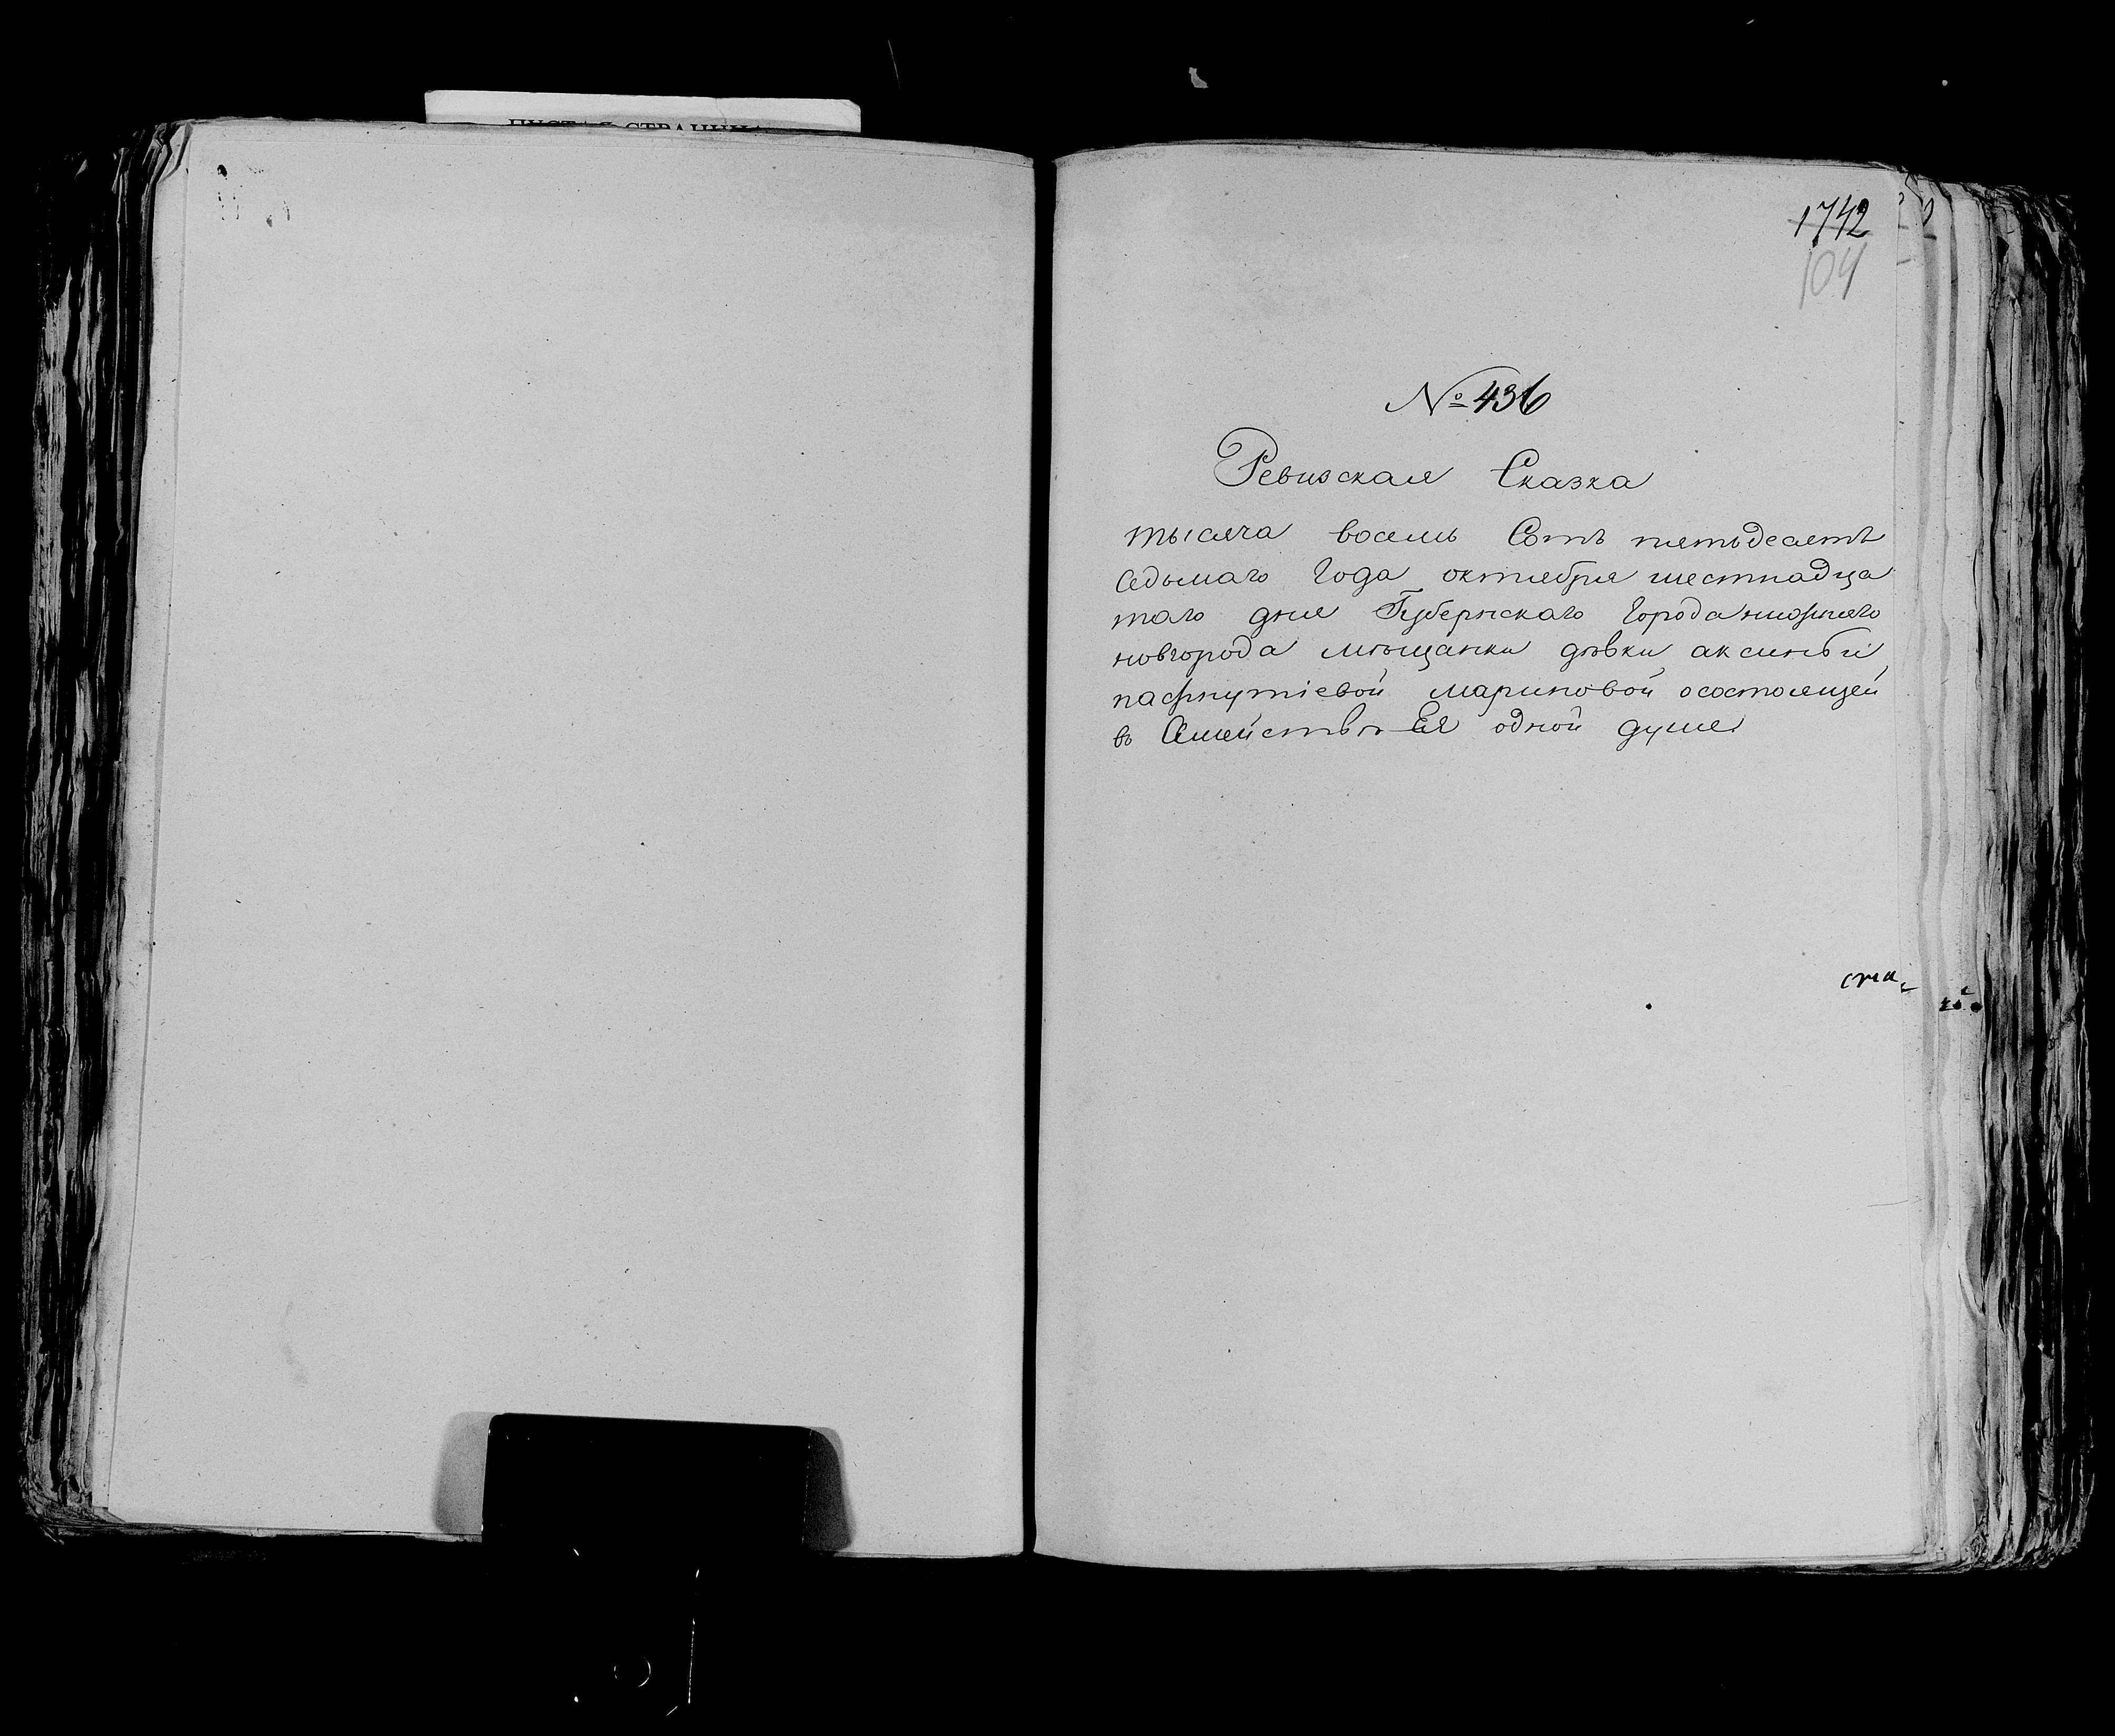 ЧИСТАЯ СТРАНИЦА
1742
104
№ 436
Ревизская Сказка
тысяча восемь Сотъ пятьдесятъ
седьмаго Года октября шестнадца
таго дня Губернскаго Города нижняго
новгорода мѣщанки дѣвки аксиньи
пафнутіевой мариновой о состоящей
въ Семействѣ Ея одной душе
ста-